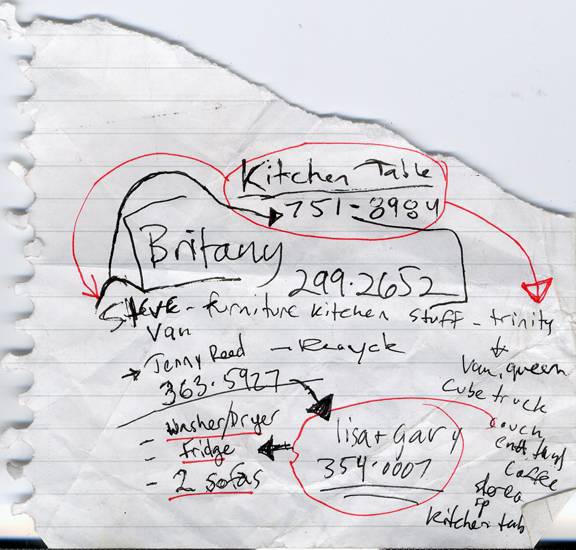 Kitchen Table
751-8984
Britany
299.2652
Steve - furniture kitchen stuff - trinity
Van
Jenny Reed
363.5927
van, queen
cube truck
- Washer/Dryer
- Fridge
- 2 Sofas
lisa + gary
354.0007
couch
coffee
stereo
Kitchen tab